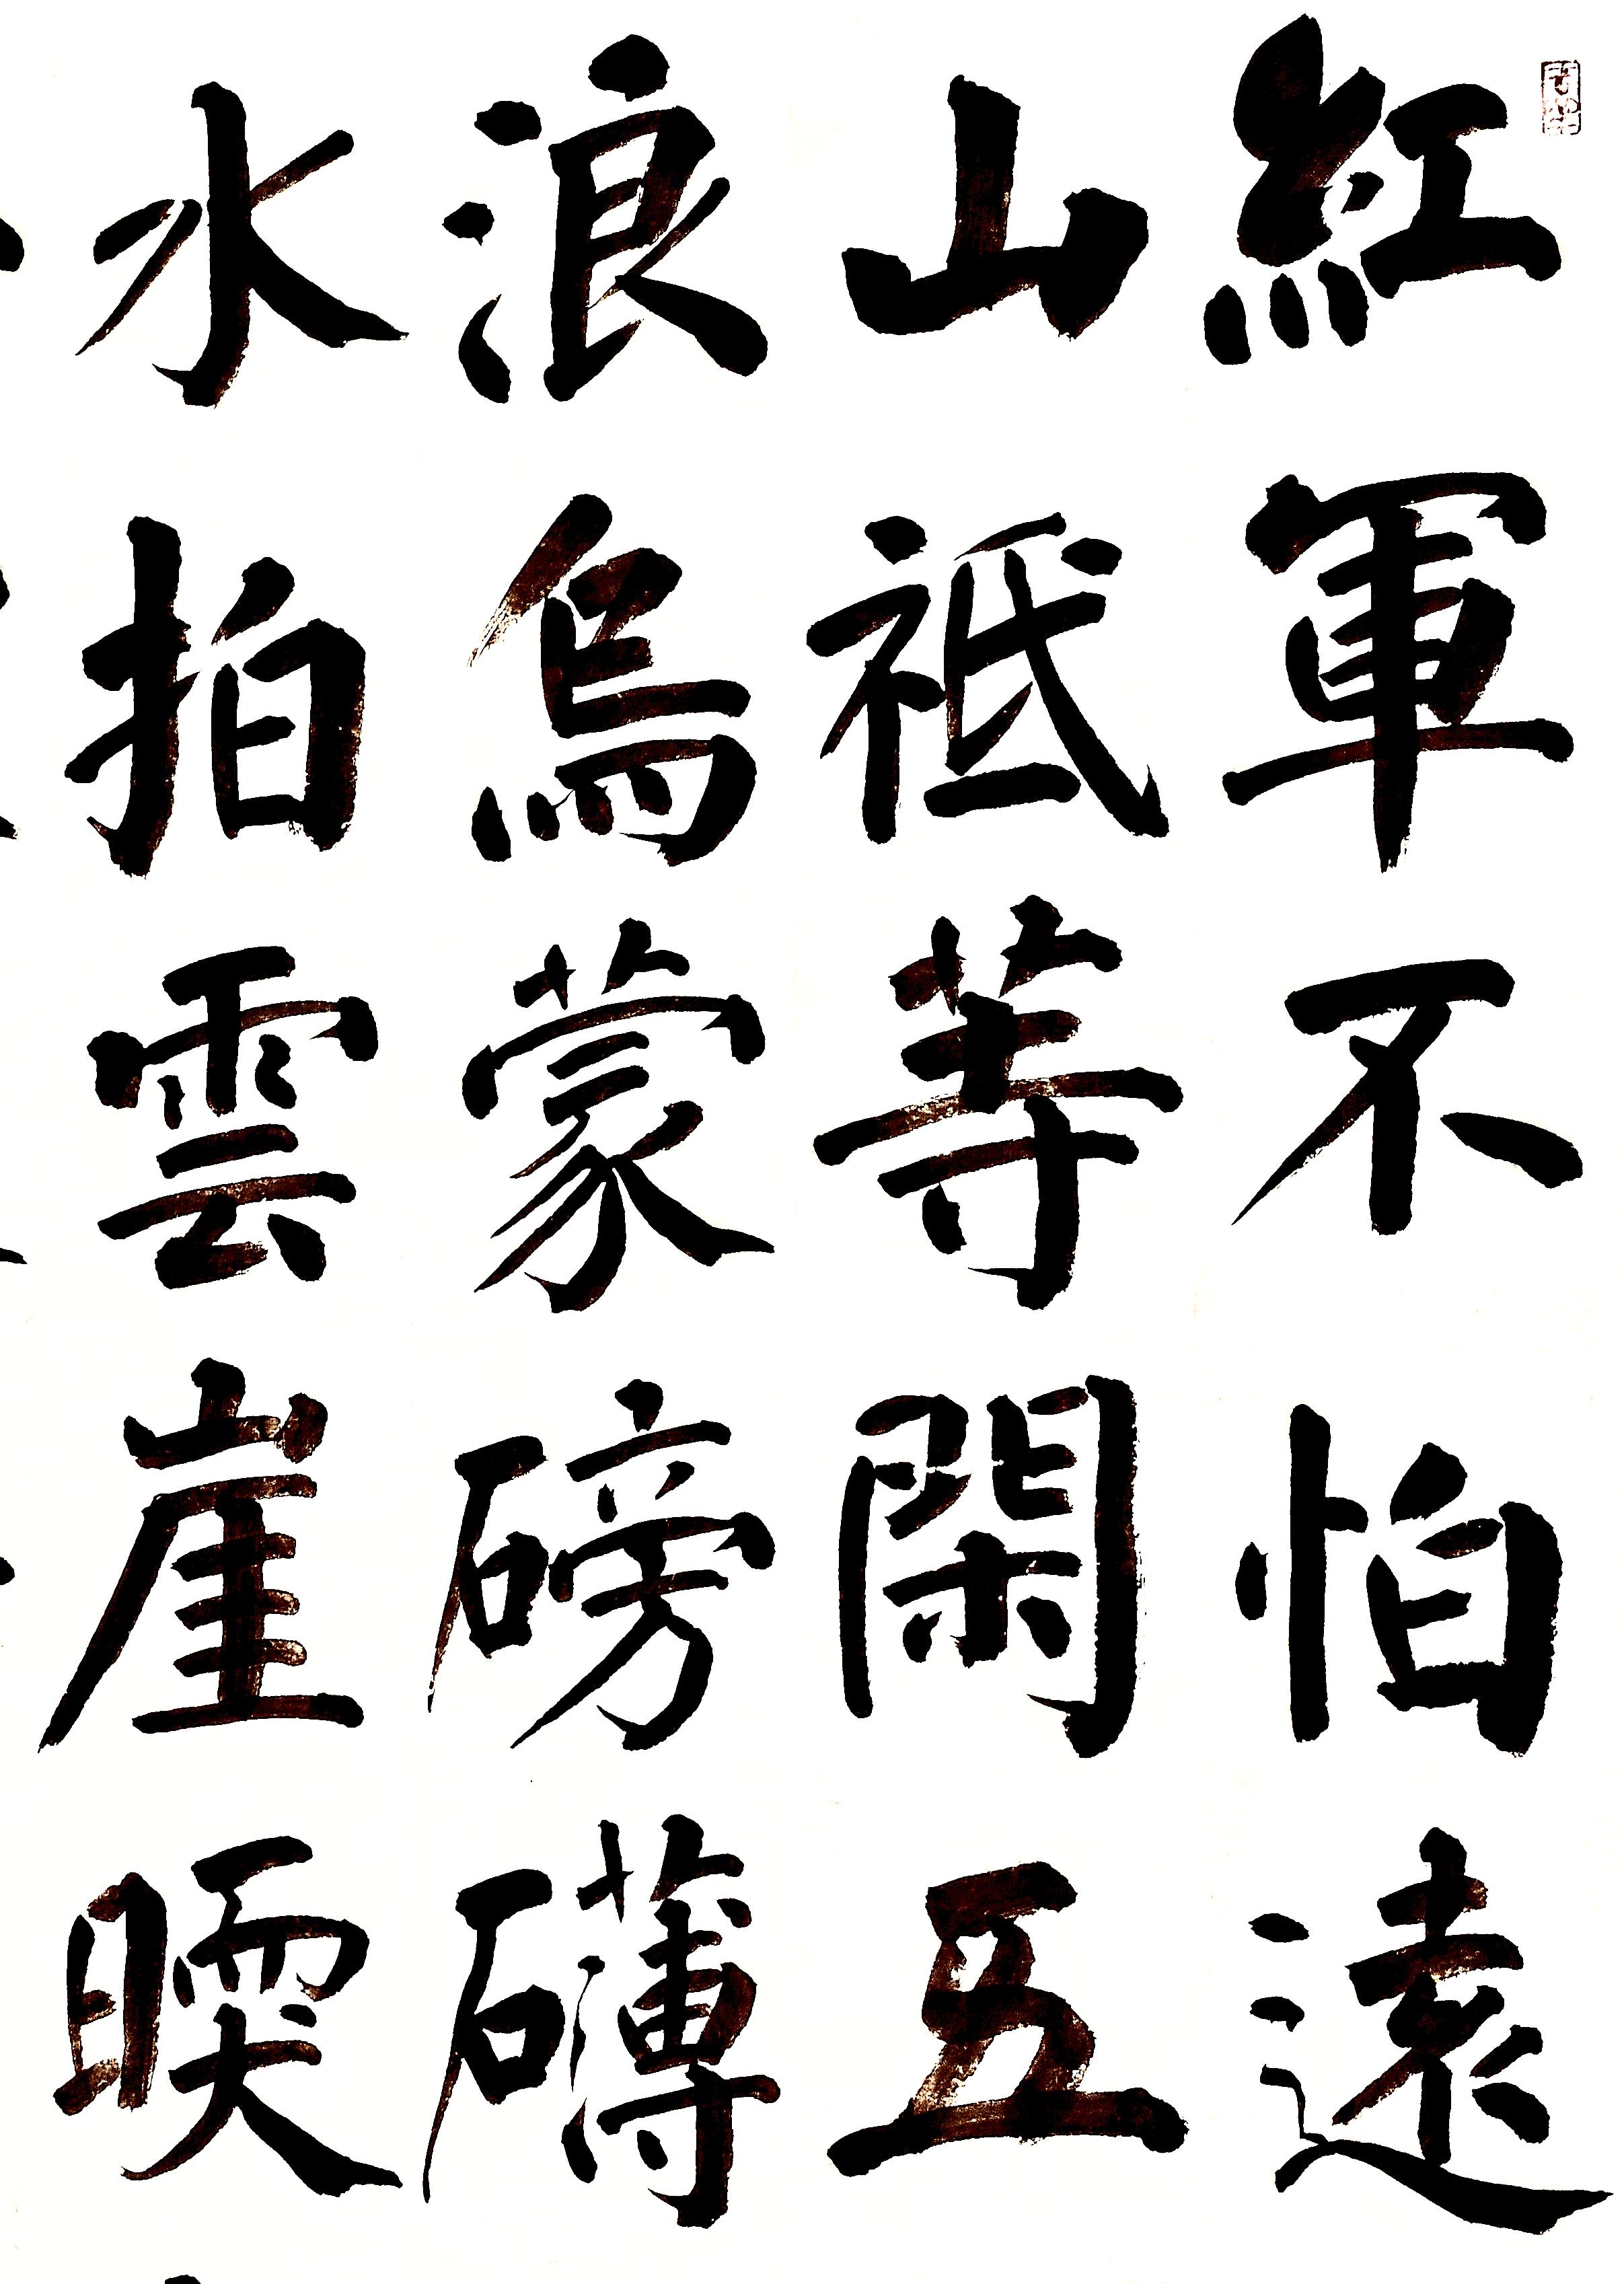 紅軍不怕遠
山祗等閑五
浪烏蒙磅礴
水拍雲崖暝